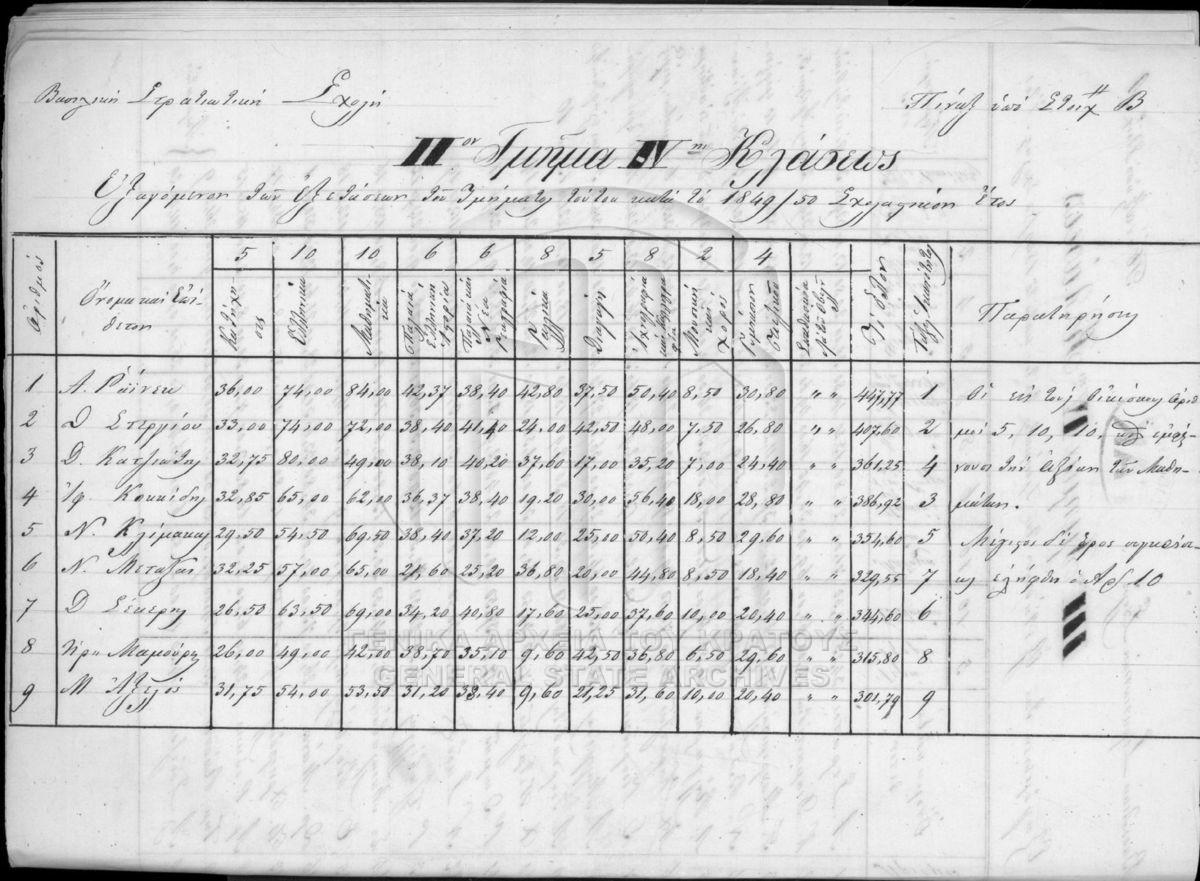 Βασιλική Στρατιωτική Σχολή
Πίναξ ὑπό Στοιχ Β
IIον Τμῆμα IVης Κλάσεως
Ἐξαγόμενον τῶν ἐξετάσεων τοῦ Τμήματος τούτου κατά τό 1849/50 Σχολαστικόν Ἔτος
5 10 10 6 6 8 5 8 2 4
Ἀριθμός Ὄνομα καί Ἐπίθετον Κατήχησις Ἑλληνικά Μαθηματικά Παλαιά Ἑλληνική Ἱστορία Παλαιά καί Νέα Γεωγραφία Γαλλικά Μουσική καί Χορός Παρατηρήσεις
1 Λ. Ράϊνεκ 36,00 74,00 84,00 42,37 38,40 42,80 37,50 50,40 8,50 30,80 " " 447,77 1 Οἱ εἰς τούς Οἰκίσκους Ἀριθ
2 Δ Στεργίου 33,00 74,00 72,00 38,40 41,40 24,00 42,50 48,00 7,50 26,80 " " 407,60 2 μοί 5, 10, 10,
3 Δ. 32,75 80,00 49,00 38,10 40,20 37,60 17,00 35,20 7,00 24,40 " " 361,25 4 νουσι τήν ἀξίαν τῶν Μαθη-
4 Κοκκίδης 32,85 65,00 62,10 36,37 38,40 19,20 30,00 56,40 18,00 28,80 " " 386,92 3 μάτων.
5 Ν. Κλίμακας 29,50 54,50 69,50 38,40 37,20 12,00 25,00 50,40 8,50 29,60 " " 354,60 5 Μέγιστος δέ ὅρος συγκρίσε-
6 Ν Μεταξᾶς 32,25 57,00 65,00 21,60 25,20 36,80 20,00 44,80 8,50 18,40 " " 329,55 7 ως ἐλήφθη ὁ Ἀρ 10
7 Δ Σέκερης 26,50 63,50 69,00 34,20 40,80 17,60 25,00 37,60 10,00 20,40 " " 344,60 6
8 Μαμούρης 26,00 49,00 42,00 38,70 35,10 9,60 42,50 36,80 6,50 29,60 " " 315,80 8
9 Μ Ἀξελός 31,75 54,00 53,50 31,20 38,40 9,60 21,25 31,60 10,00 20,40 " " 301,79 9
ΓΕΝΙΚΑ ΑΡΧΕΙΑ ΤΟΥ ΚΡΑΤΟΥΣ
GENERAL STATE ARCHIVES